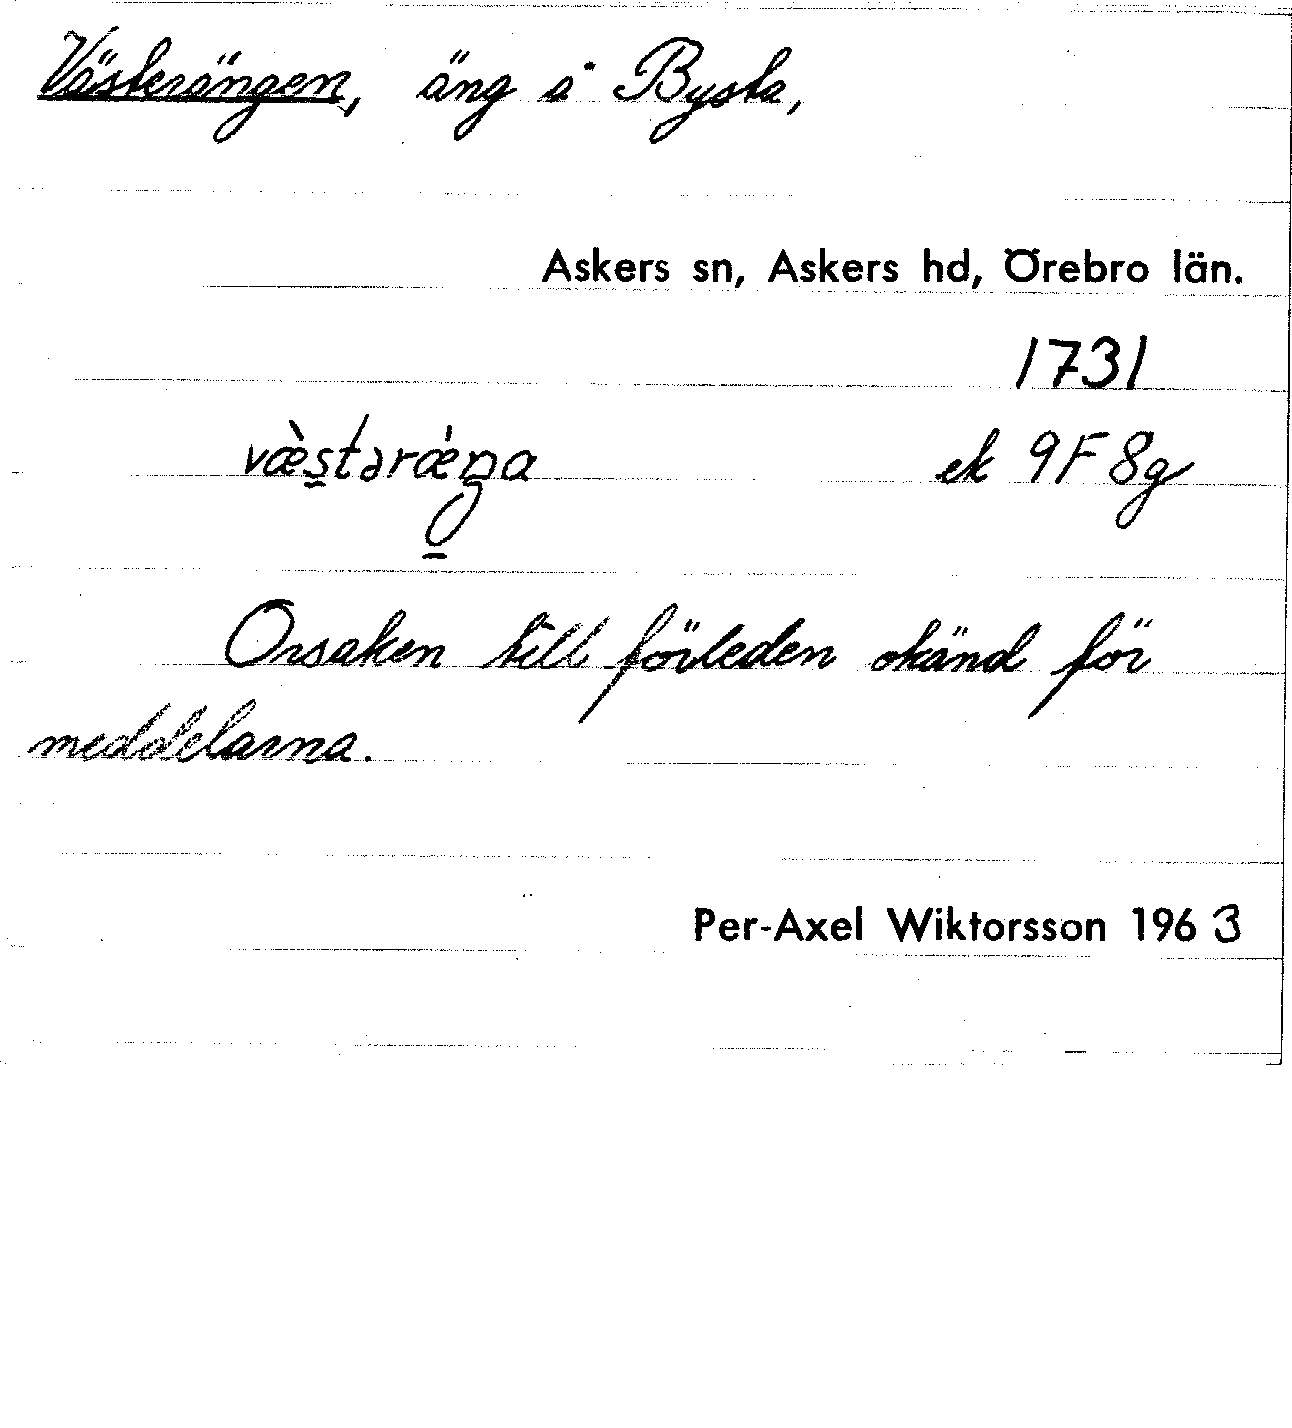 Västerängen, äng å Bysta,
Askers sn, Askers hd, Örebro län.
1731
væ̀s̲tərǽŋa ek 9F8g
Orsaken till förleden okänd för
meddelarna.
Per-Axel Wiktorsson 1963